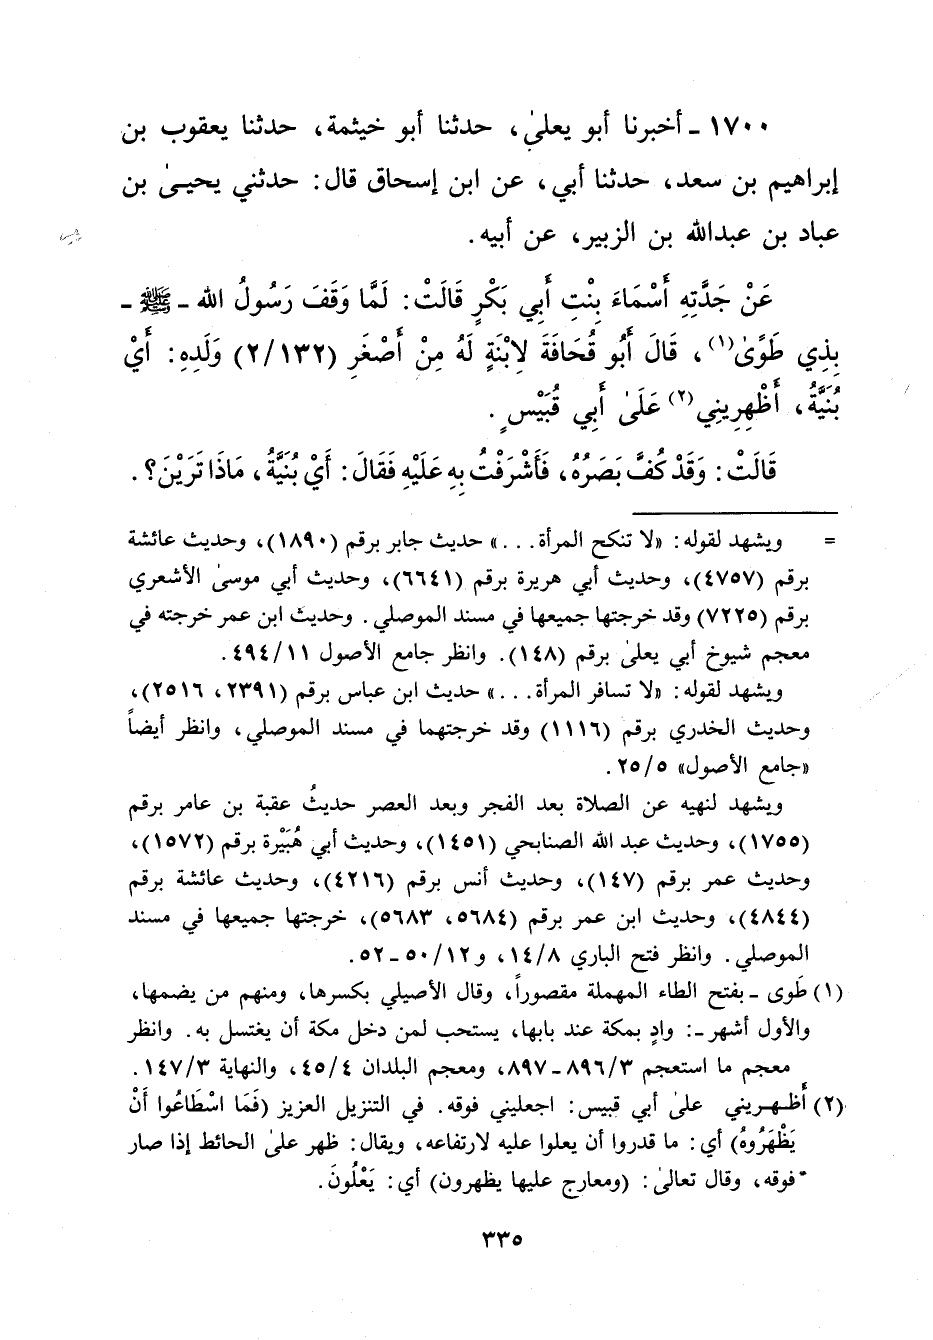 ١٧٠٠ ـ أخبرنا أبو يعلىٰ، حدثنا أبو خيثمة، حدثنا يعقوب بن
إبراهيم بن سعد، حدثنا أبي، عن ابن إسحاق قال: حدثني يحيىٰ بن
عباد بن عبدالله بن الزبير، عن أبيه.
عَنْ جَدَّتِهِ أَسْمَاءَ بِنْتِ أَبِي بَكْرٍ قَالَتْ: لَمَّا وَقَفَ رَسُولُ الله ـ ﷺ ـ
بِذِي طَوًىٰ(١)، قَالَ أَبُو قُحَافَةَ لِابْنَةٍ لَهُ مِنْ أَصْغَرِ (٢/١٣٢) وَلَدِهِ: أَيْ
بُنَيَّةُ، أَظْهِرِينِي(٢) عَلَىٰ أَبِي قُبَيْسٍ.
قَالَتْ: وَقَدْ كُفَّ بَصَرُهُ، فَأَشْرَفْتُ بِهِ عَلَيْهِ فَقَالَ: أَيْ بُنَيَّةُ، مَاذَا تَرَيْنَ؟.
= ويشهد لقوله: «لا تنكح المرأة. . .» حديث جابر برقم (١٨٩٠)، وحديث عائشة
برقم (٤٧٥٧)، وحديث أبي هريرة برقم (٦٦٤١)، وحديث أبي موسىٰ الأشعري
برقم (٧٢٢٥) وقد خرجتها جميعها في مسند الموصلي. وحديث ابن عمر خرجته في
معجم شيوخ أبي يعلىٰ برقم (١٤٨). وانظر جامع الأصول ٤٩٤/١١.
ويشهد لقوله: «لا تسافر المرأة. . .» حديث ابن عباس برقم (٢٣٩١، ٢٥١٦)،
وحديث الخدري برقم (١١١٦) وقد خرجتهما في مسند الموصلي، وانظر أيضاً
«جامع الأصول» ٢٥/٥.
ويشهد لنهيه عن الصلاة بعد الفجر وبعد العصر حديثُ عقبة بن عامر برقم
(١٧٥٥)، وحديث عبد الله الصنابحي (١٤٥١)، وحديث أبي هُبَيْرة برقم (١٥٧٢)،
وحديث عمر برقم (١٤٧)، وحديث أنس برقم (٤٢١٦)، وحديث عائشة برقم
(٤٨٤٤)، وحديث ابن عمر برقم (٥٦٨٤، ٥٦٨٣)، خرجتها جميعها في مسند
الموصلي. وانظر فتح الباري ١٤/٨، و ٥٠/١٢ ـ ٥٢.
(١) طَوى ـ بفتح الطاء المهملة مقصوراً، وقال الأصيلي بكسرها، ومنهم من يضمها،
والأول أشهر ـ: وادٍ بمكة عند بابها، يستحب لمن دخل مكة أن يغتسل به. وانظر
معجم ما استعجم ٨٩٦/٣ ـ ٨٩٧، ومعجم البلدان ٤٥/٤، والنهاية ١٤٧/٣.
(٢) أَظهريني علىٰ أبي قبيس: اجعليني فوقه. في التنزيل العزيز (فَمَا اسْطَاعُوا أَنْ
يَظْهَرُوهُ) أي: ما قدروا أن يعلوا عليه لارتفاعه، ويقال: ظهر علىٰ الحائط إذا صار
فوقه، وقال تعالىٰ: (ومعارج عليها يظهرون) أي: يَعْلُونَ.
٣٣٥